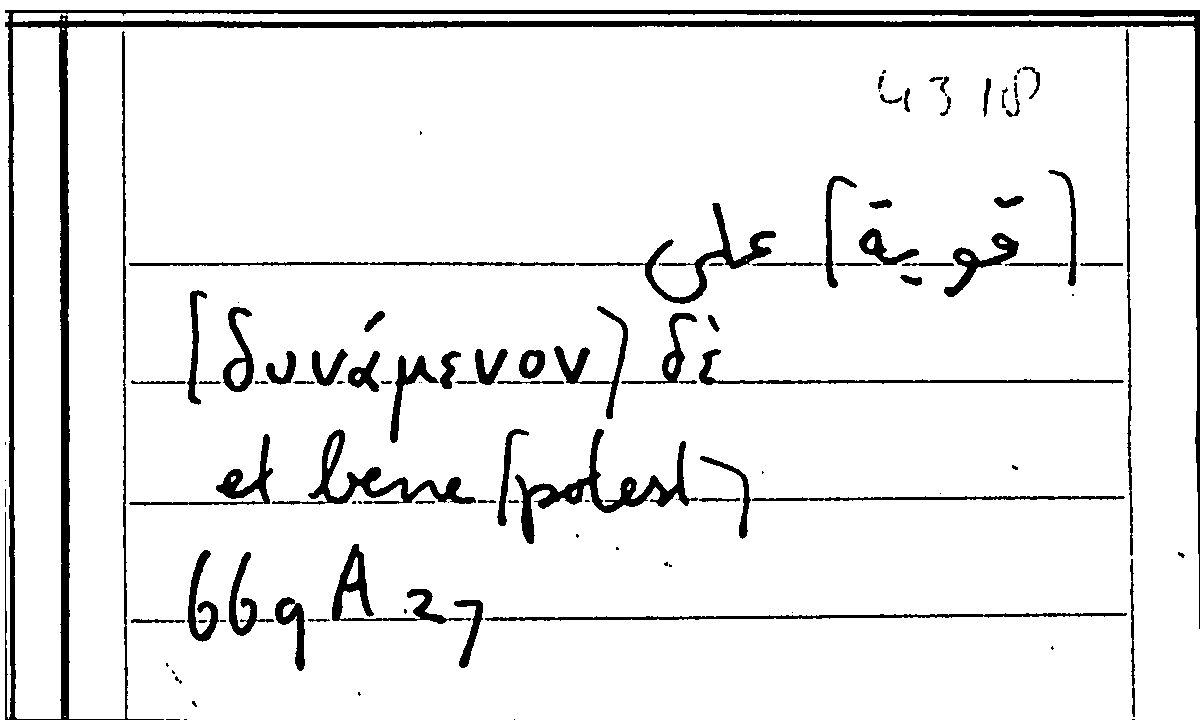 4318
[قوية] على
[δυνάμενον] δὲ
et bene [potest]
669 A 27